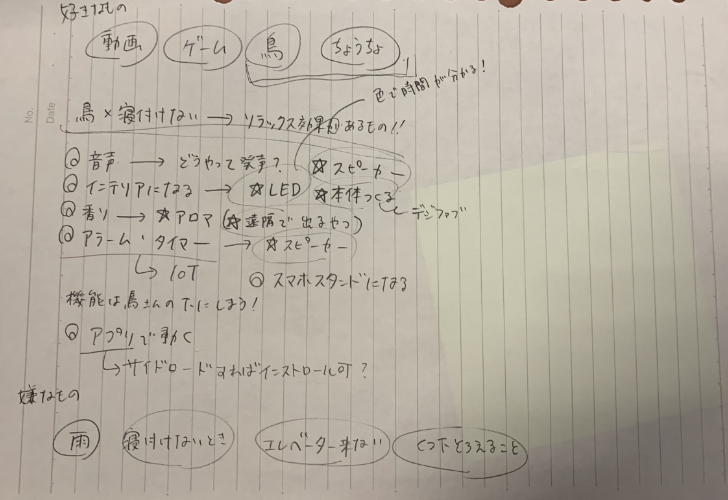 好きなもの
動画 ゲーム 鳥 ちょうちょ
色で時間が分かる!
No.
Date
鳥 × 寝付けない → リラックス効果があるもの!!
◎ 音声 → どうやって発声? ☆スピーカー
◎ インテリアになる → ☆LED ☆本体つくる
デジファブ
◎ 香り → ☆アロマ (☆遠隔で出るやつ)
◎ アラーム・タイマー → ☆スピーカー
↳ IoT ◎ スマホスタンドになる
機能は鳥さんの下にしまう!
◎ アプリで動く
↳サイドロードすればインストロール可?
嫌なもの
雨 寝付けないとき エレベーター来ない くつ下そろえること